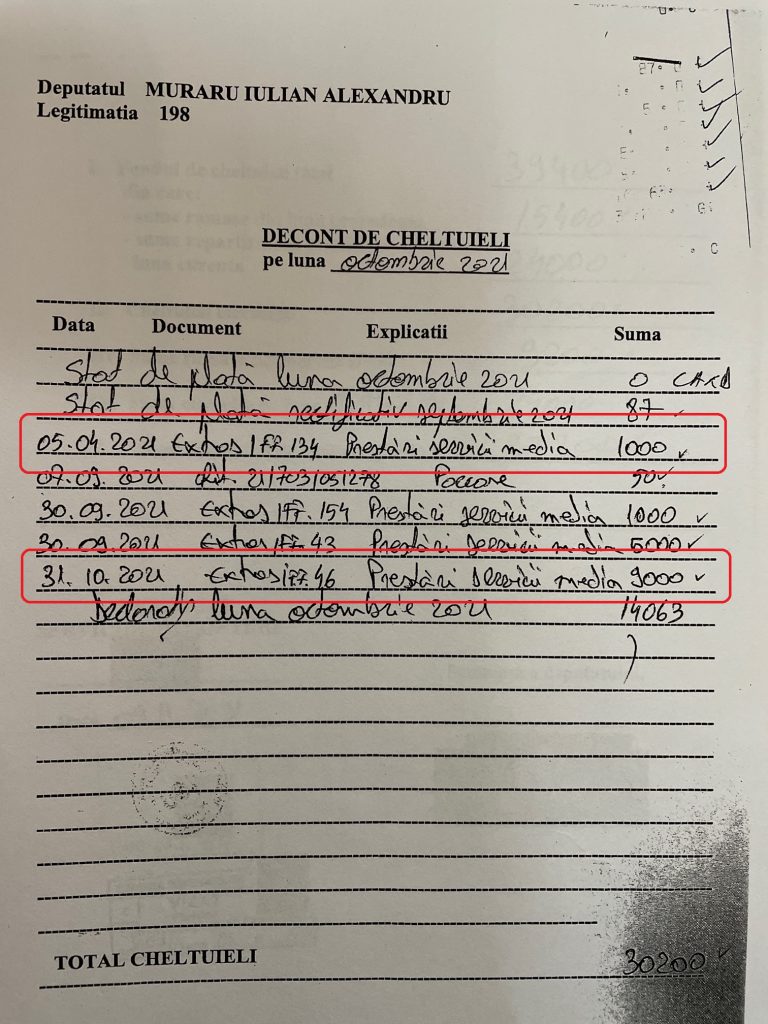 Deputatul MURARU IULIAN ALEXANDRU
Legitimatia 198
DECONT DE CHELTUIELI
pe luna octombrie 2021
Data Document Explicatii Suma
Stat de plată luna octombrie 2021 0 CARD
Stat de plată rectificativ septembrie 2021 87
05.04.2021 Extras/FF. 134 Prestări servicii media 1000
07.09.2021 21/703/051278 50
30.09.2021 Extras/FF. 154 Prestări servicii media 1000
30.09.2021 Extras/FF. 43 Prestări servicii media 5000
31.10.2021 Extras/FF. 46 Prestări servicii media 9000
luna octombrie 2021 14063
TOTAL CHELTUIELI 30200